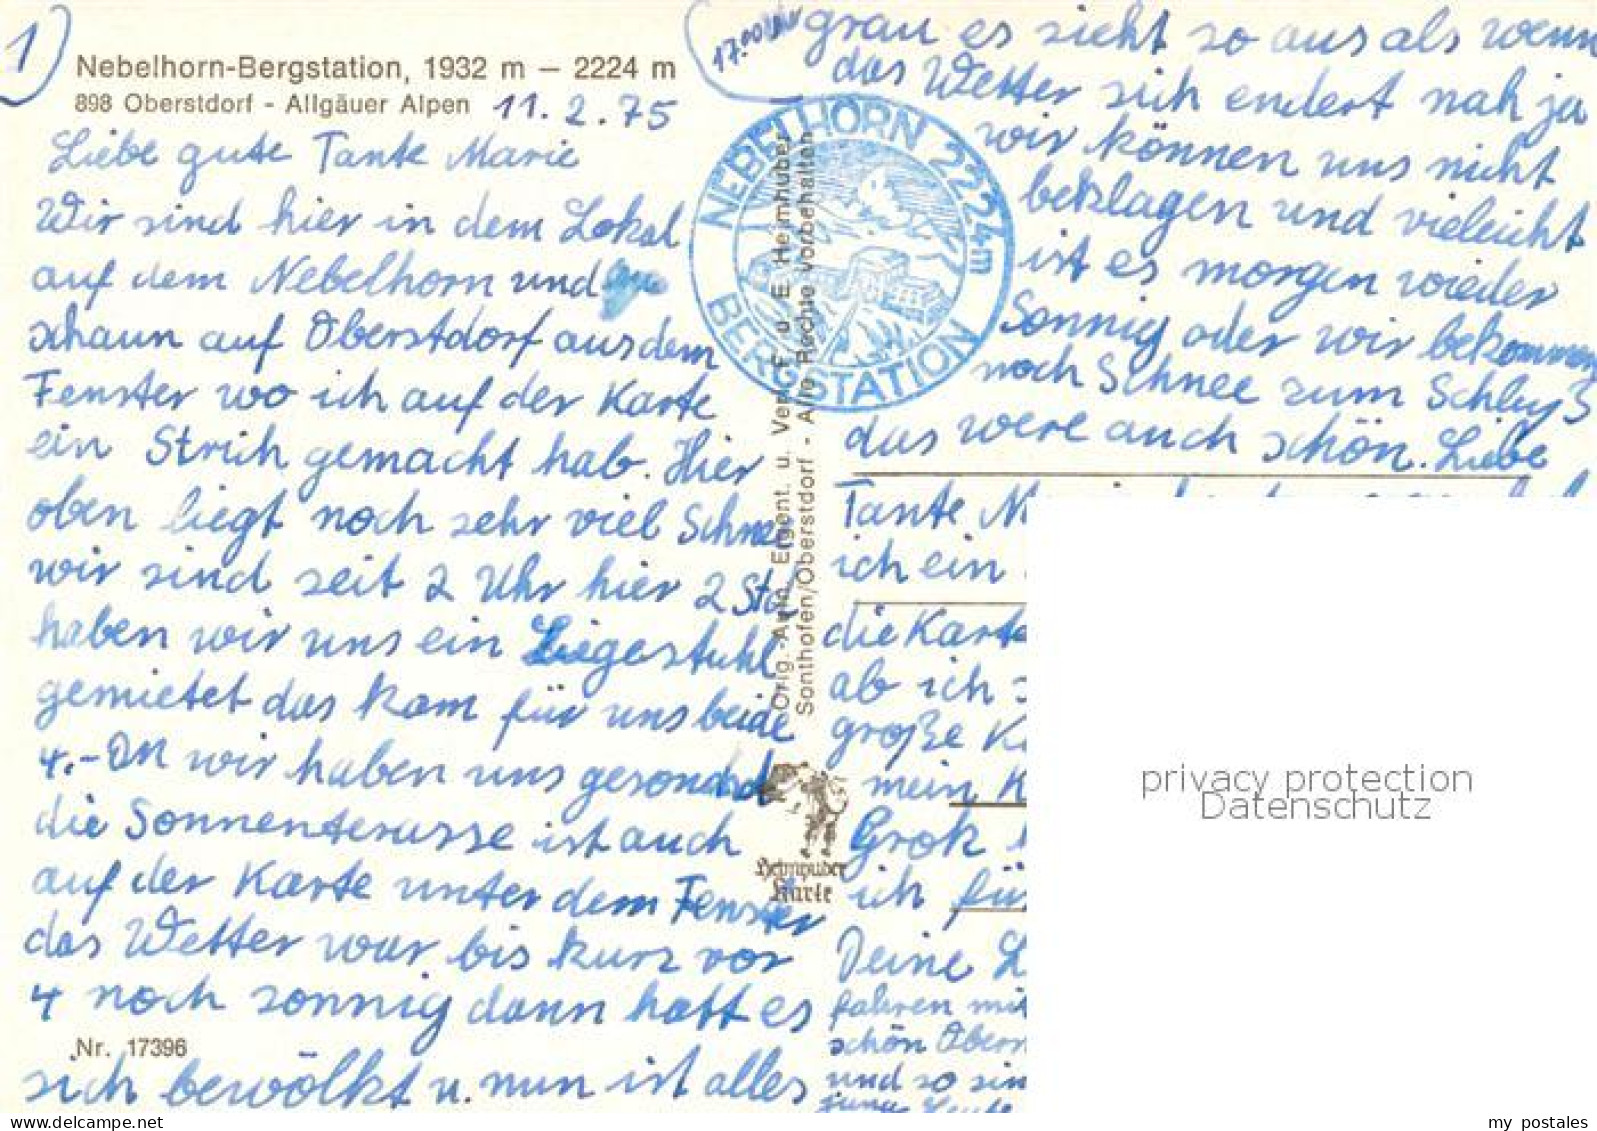 1)
Nebelhorn-Bergstation, 1932 m – 2224 m
898 Oberstdorf - Allgäuer Alpen 11.2.75
Liebe gute Tante Marie
Wir sind hier in dem Lokal
auf dem Nebelhorn und
schaun auf Oberstdorf aus dem
Fenster wo ich auf der Karte
ein Strich gemacht hab. Hier
oben liegt noch sehr viel Schnee
wir sind seit 2 Uhr hier 2 Std
haben wir uns ein Liegestuhl
gemietet das kam für uns beide
4.- DM wir haben uns gesonnd
die Sonnenterasse ist auch
auf der Karte unter dem Fenster
das Wetter war bis kurz vor
4 noch sonnig dann hatt es
Nr. 17396
sich bewölkt u. nun ist alles
17.00 Uhr
grau es sieht so aus als wenn
das Wetter sich endert nah ja
wir können uns nicht
beklagen und vieleicht
ist es morgen wieder
Sonnig oder wir bekommen
noch Schnee zum Schluß
das were auch schön. Liebe
Tante M
ich ein
die Karte
ab ich
große K
mein K
Grok
ich für
Deine L
fahren mit
schön Obern
und so sin
junge Leute
NEBELHORN 2224m
BERGSTATION
Orig.-Aufn. Eigent. u. Verl. F. u. E. Heimhuber
Sonthofen/Oberstdorf - Alle Rechte vorbehalten
Heimhuber
Karte
privacy protection
Datenschutz
my postales